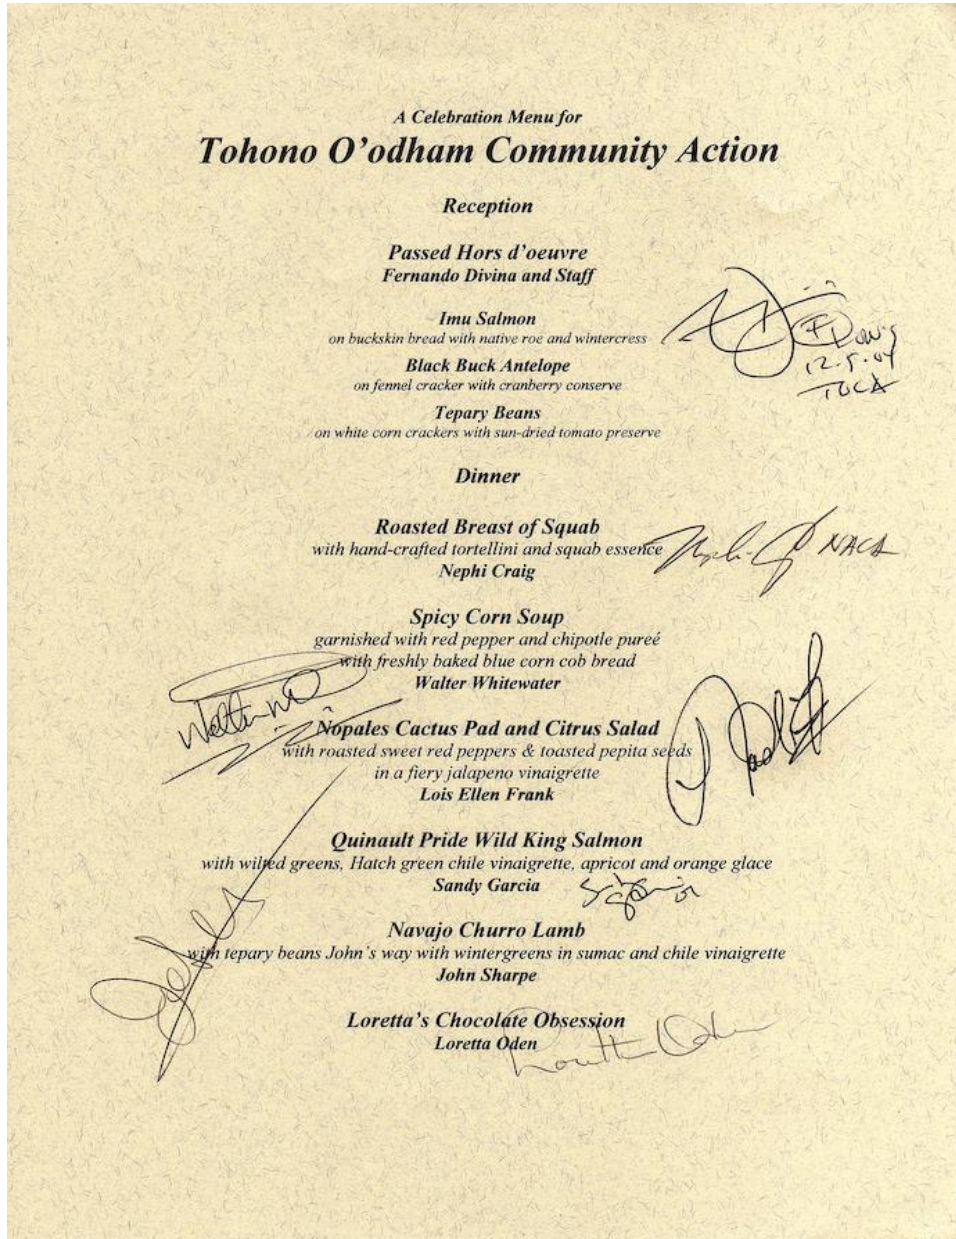 A Celebration Menu for
Tohono O'odham Community Action
Reception
Passed Hors d'oeuvre
Fernando Divina and Staff
Imu Salmon
on buckskin bread with native roe and wintercress
Black Buck Antelope
on fennel cracker with cranberry conserve
Tepary Beans
on white corn crackers with sun-dried tomato preserve
12.5.04
TOCA
Dinner
Roasted Breast of Squab
with hand-crafted tortellini and squab essence
NACA
Nephi Craig
Spicy Corn Soup
garnished with red pepper and chipotle pureé
with freshly baked blue corn cob bread
Walter Whitewater
Nopales Cactus Pad and Citrus Salad
with roasted sweet red peppers & toasted pepita seeds
in a fiery jalapeno vinaigrette
Lois Ellen Frank
Quinault Pride Wild King Salmon
with wilted greens, Hatch green chile vinaigrette, apricot and orange glace
Sandy Garcia
Navajo Churro Lamb
with tepary beans John's way with wintergreens in sumac and chile vinaigrette
John Sharpe
Loretta's Chocolate Obsession
Loretta Oden
Loretta Oden